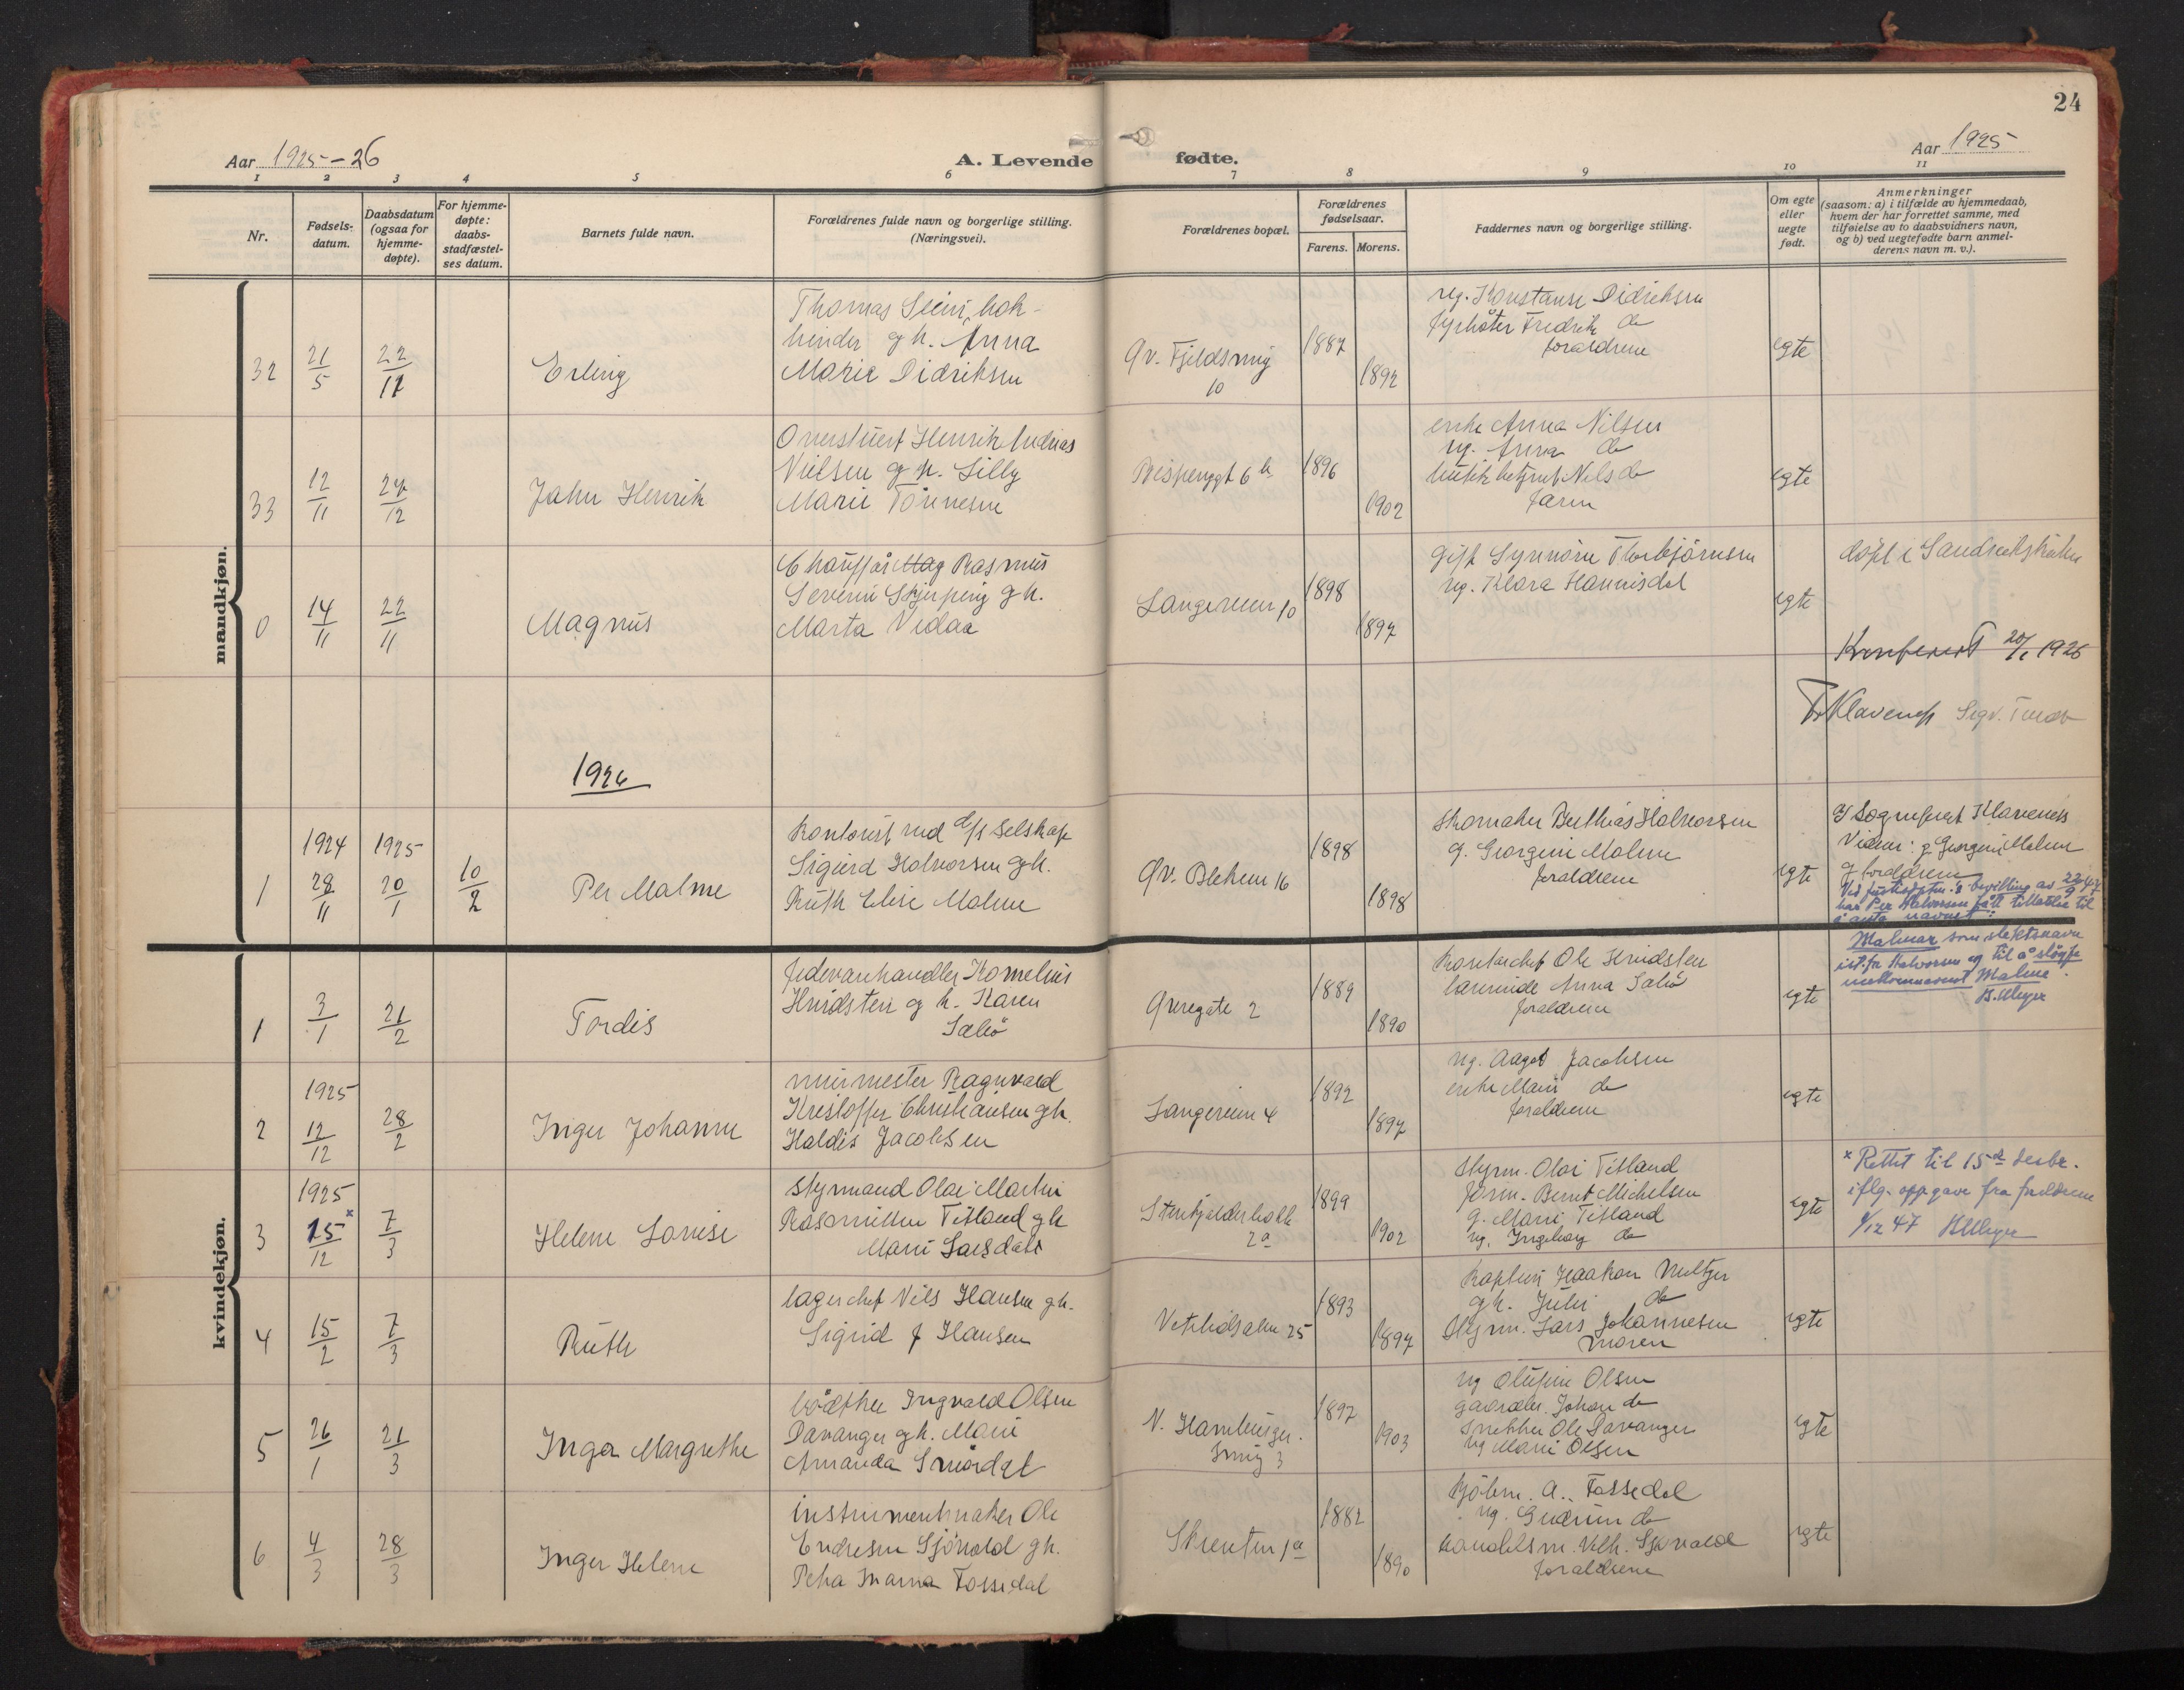 24
Aar 1925-26
A. Levende
fødte.
Aar 1925
1 2 3 4 5 6 7 8 9 10 11
Nr.
Fødsels-
datum.
Daabsdatum
(ogsaa for
hjemme-
døpte).
For hjemme-
døpte:
daabs-
stadfæstel-
ses datum.
Barnets fulde navn.
Forældrenes fulde navn og borgerlige stilling.
(Næringsvei).
Forældrenes bopæl.
Forældrenes
fødselsaar.
Farens. Morens.
Faddernes navn og borgerlige stilling.
Om egte
eller
uegte
født.
Anmerkninger
(saasom: a) i tilfælde av hjemmedaab,
hvem der har forrettet samme, med
tilføielse av to daabsvidners navn,
og b) ved uegtefødte barn anmel-
derens navn m. v.).
mandkjøn.
32 21/5 22/12 Erling
Thomas bok-
binder g h. Anna
Marie Didriksen
Øv. Fjeldsmug
10
1887 1892
ug. Konstanse Didriksen
fyrbøter Fredrik do
forældrene
egte
33 12/11 27/12 Jahn Henrik
Overstuert Henrik Andreas
Nielsen g h. Lilly
Marie Tönnesen
Bispenggt 6 b
1896 1902
enke Anna Nilsen
ug. Anna do
Nils do
faren
egte
0 14/11 22/11 Magnus
Chauffør Mag Rasmus
Severin Skjerping g h.
Marta Vidaa
Langereien 10
1898 1897
gift Synnøve Thorbjörnsen
ug. Klara Hannisdal
egte
døpt i Sandvikskirken
Konferert 20/1 1926
Fr Klaveness Sigv.
1926
1 1924 28/11 1925 20/1 10/2 Per Malme
Kontorist ved d/s selskap
Sigurd Halvorsen g h.
Ruth Elise Malme
Øv. Blekevn 16
1898 1898
skomaker Berthias Halvorsen
g. Georgine Malme
forældrene
egte
af Sogneprest Klaveness
Vidner: g Georgine Malme
g forældrene
Ved justisdptm.s bevilling av 22/9 47
har Per Halvorsen fått tillatelse til
å anta navnet:
Malmar som slektsnavn
ist. for Halvorsen og til å sløyfe
mellemnavnet Malme.
B. Meyer
kvindekjøn.
1 3/1 21/2 Tordis
fedevarehandler Kornelius
Hundsten g h. Karen
Sælø
Øvregate 2
1889 1890
Kontorchef Ole Hundsten
lærerinde Anna Sælö
forældrene
egte
2 1925 12/12 28/2 Inger Johanne
murmester Ragnvald
Kristoffer Christiansen g h.
Haldis Jacobsen
Langereien 4
1892 1897
ug. Aagot Jacobsen
enke Marie do
forældrene
egte
3 1925 15/12 * 7/3 Helene Lovise
styrmand Olai Martin
Rasmussen Titland g h
Marie Larsdatt
Stenkjelderbakk
2a
1899 1902
styrm. Olai Titland
form. Bernt Michelsen
g. Marie Titland
ug. Ingeborg do
egte
* Rettet til 15de desbr.
iflg. oppgave fra foreldrene
4/12 47 B Meyer
4 15/2 7/3 Ruth
lagerchef Nils Hansen g h.
Sigrid f Hansen
Vetrlidsalm 25
1893 1897
kaptein Haakon Meltzer
g h. Julie do
styrm. Lars Johannesen
moren
egte
5 26/1 21/3 Inger Margrethe
bødker Ingvald Olsen
Davanger g h. Marie
Amanda Smördal
N. Hamburger-
smug 3
1897 1903
ug Olufine Olsen
gaardbr. Johan do
snekker Ole Davanger
ug Marie Olsen
egte
6 4/3 28/3 Inger Helene
instrumentmaker Ole
Endresen Sjövold g h.
Petra Marna Fossedal
Skrenten 1a
1882 1890
kjøbm. A. Fossedal
ug. Gudrun do
handelsm. Vilh. Sjøvold
forældrene
egte